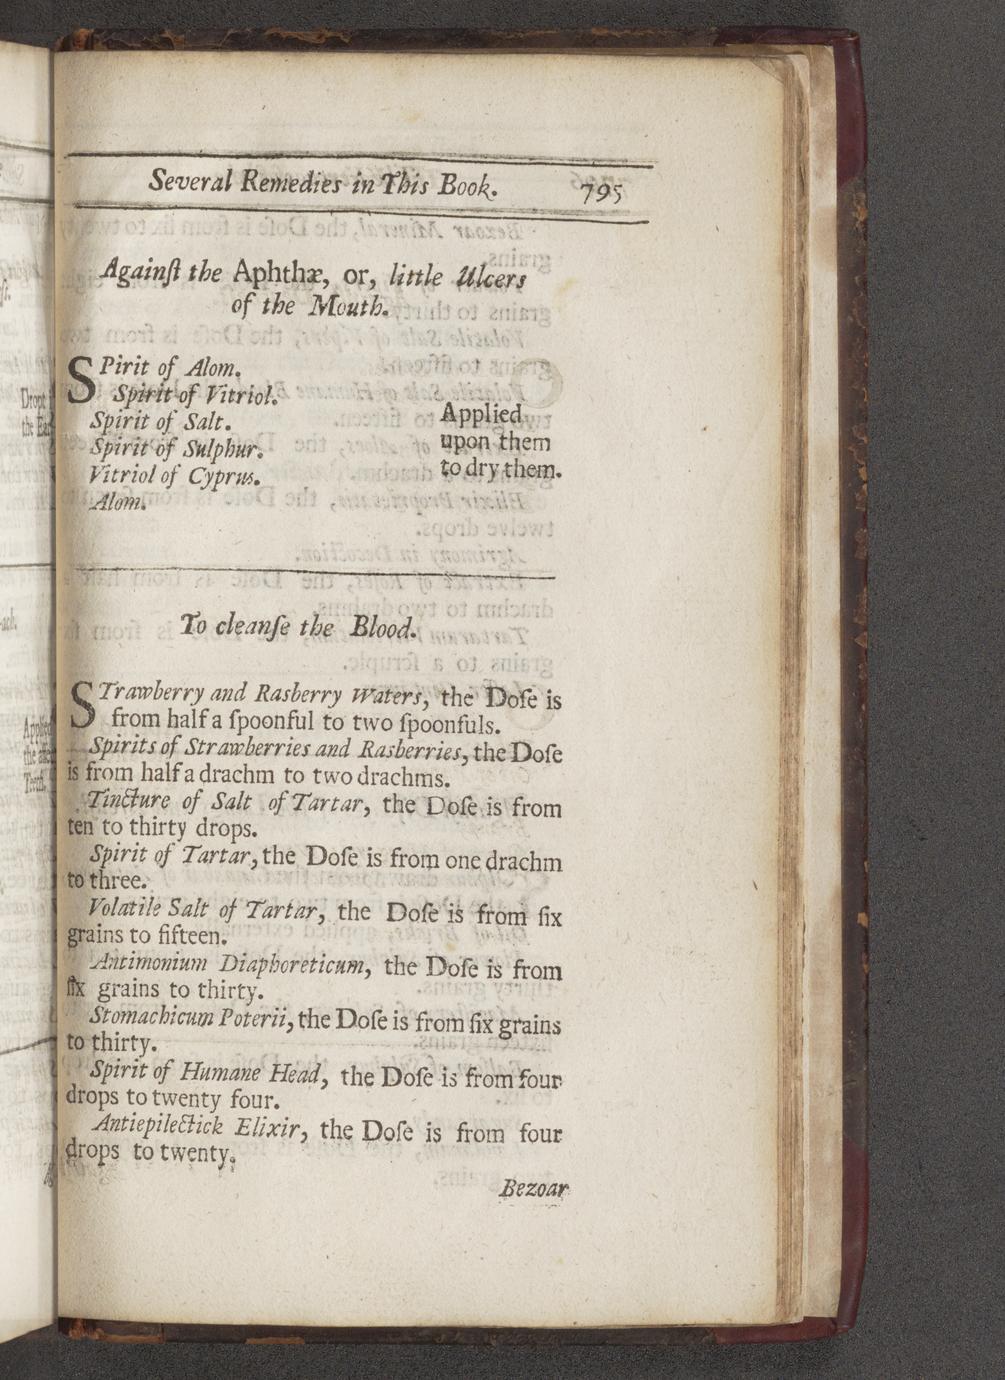 Several Remedies in This Book. 795
Againſt the Aphthæ, or, little Ulcers
of the Mouth.
SPirit of Alom.
Spirit of Vitriol.
Spirit of Salt.
Spirit of Sulphur.
Vitriol of Cyprus.
Alom.
Applied
upon them
to dry them.
To cleanſe the Blood.
STrawberry and Rasberry Waters, the Doſe is
from half a ſpoonful to two ſpoonfuls.
Spirits of Strawberries and Rasberries, the Doſe
is from half a drachm to two drachms.
Tincture of Salt of Tartar, the Doſe is from
ten to thirty drops.
Spirit of Tartar, the Doſe is from one drachm
to three.
Volatile Salt of Tartar, the Doſe is from ſix
grains to fifteen.
Antimonium Diaphoreticum, the Doſe is from
ſix grains to thirty.
Stomachicum Poterii, the Doſe is from ſix grains
to thirty.
Spirit of Humane Head, the Doſe is from four
drops to twenty four.
Antiepilectick Elixir, the Doſe is from four
drops to twenty.
Bezoar